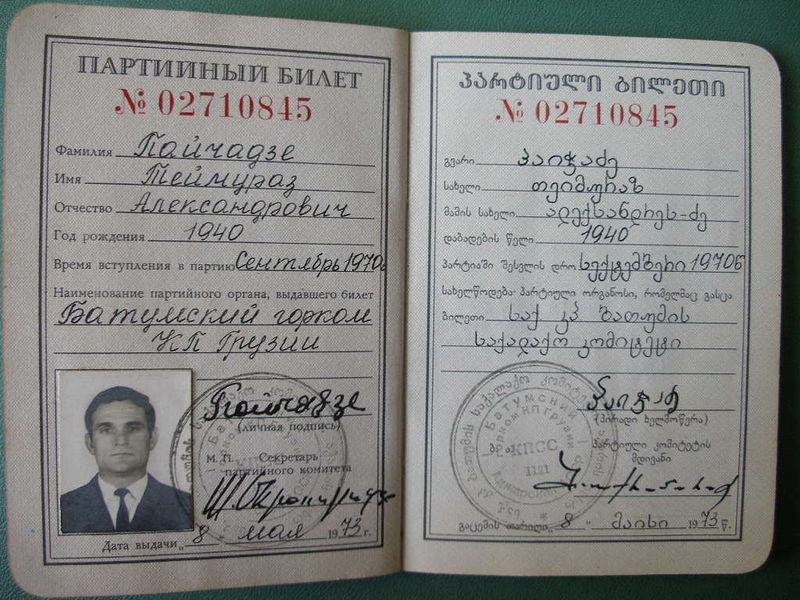 ПАРТИЙНЫЙ БИЛЕТ
№ 02710845
Фамилия Пайчадзе
Имя Теймураз
Отчество Александрович
Год рождения 1940
Время вступления в партию Сентябрь 1970г.
Наименование партийного органа, выдавшего билет
Батумский горком
КП Грузии
(личная подпись)
М. П. Секретарь
партийного комитета
Дата выдачи „8 мая 1973 г.
ᲞᲐᲠᲢᲘᲣᲚᲘ ᲑᲘᲚᲔᲗᲘ
№ 02710845
გვარი პაიჭაძე
სახელი თეიმურაზ
მამის სახელი ალექსანდრეს-ძე
დაბადების წელი 1940
პარტიაში შესვლის დრო სექტემბერი 1970წ
სახელწოდება პარტიული ორგანოსი, რომელმაც გასცა
ბილეთი საქ კპ ბათუმის
საქალაქო კომიტეტი
(პირადი ხელმოწერა)
ბ. ა. პარტიული კომიტეტის
მდივანი
Батумский
горком КП Грузии
КПСС
1121
გაცემის თარიღი „8“ მაისი 1973 წ.